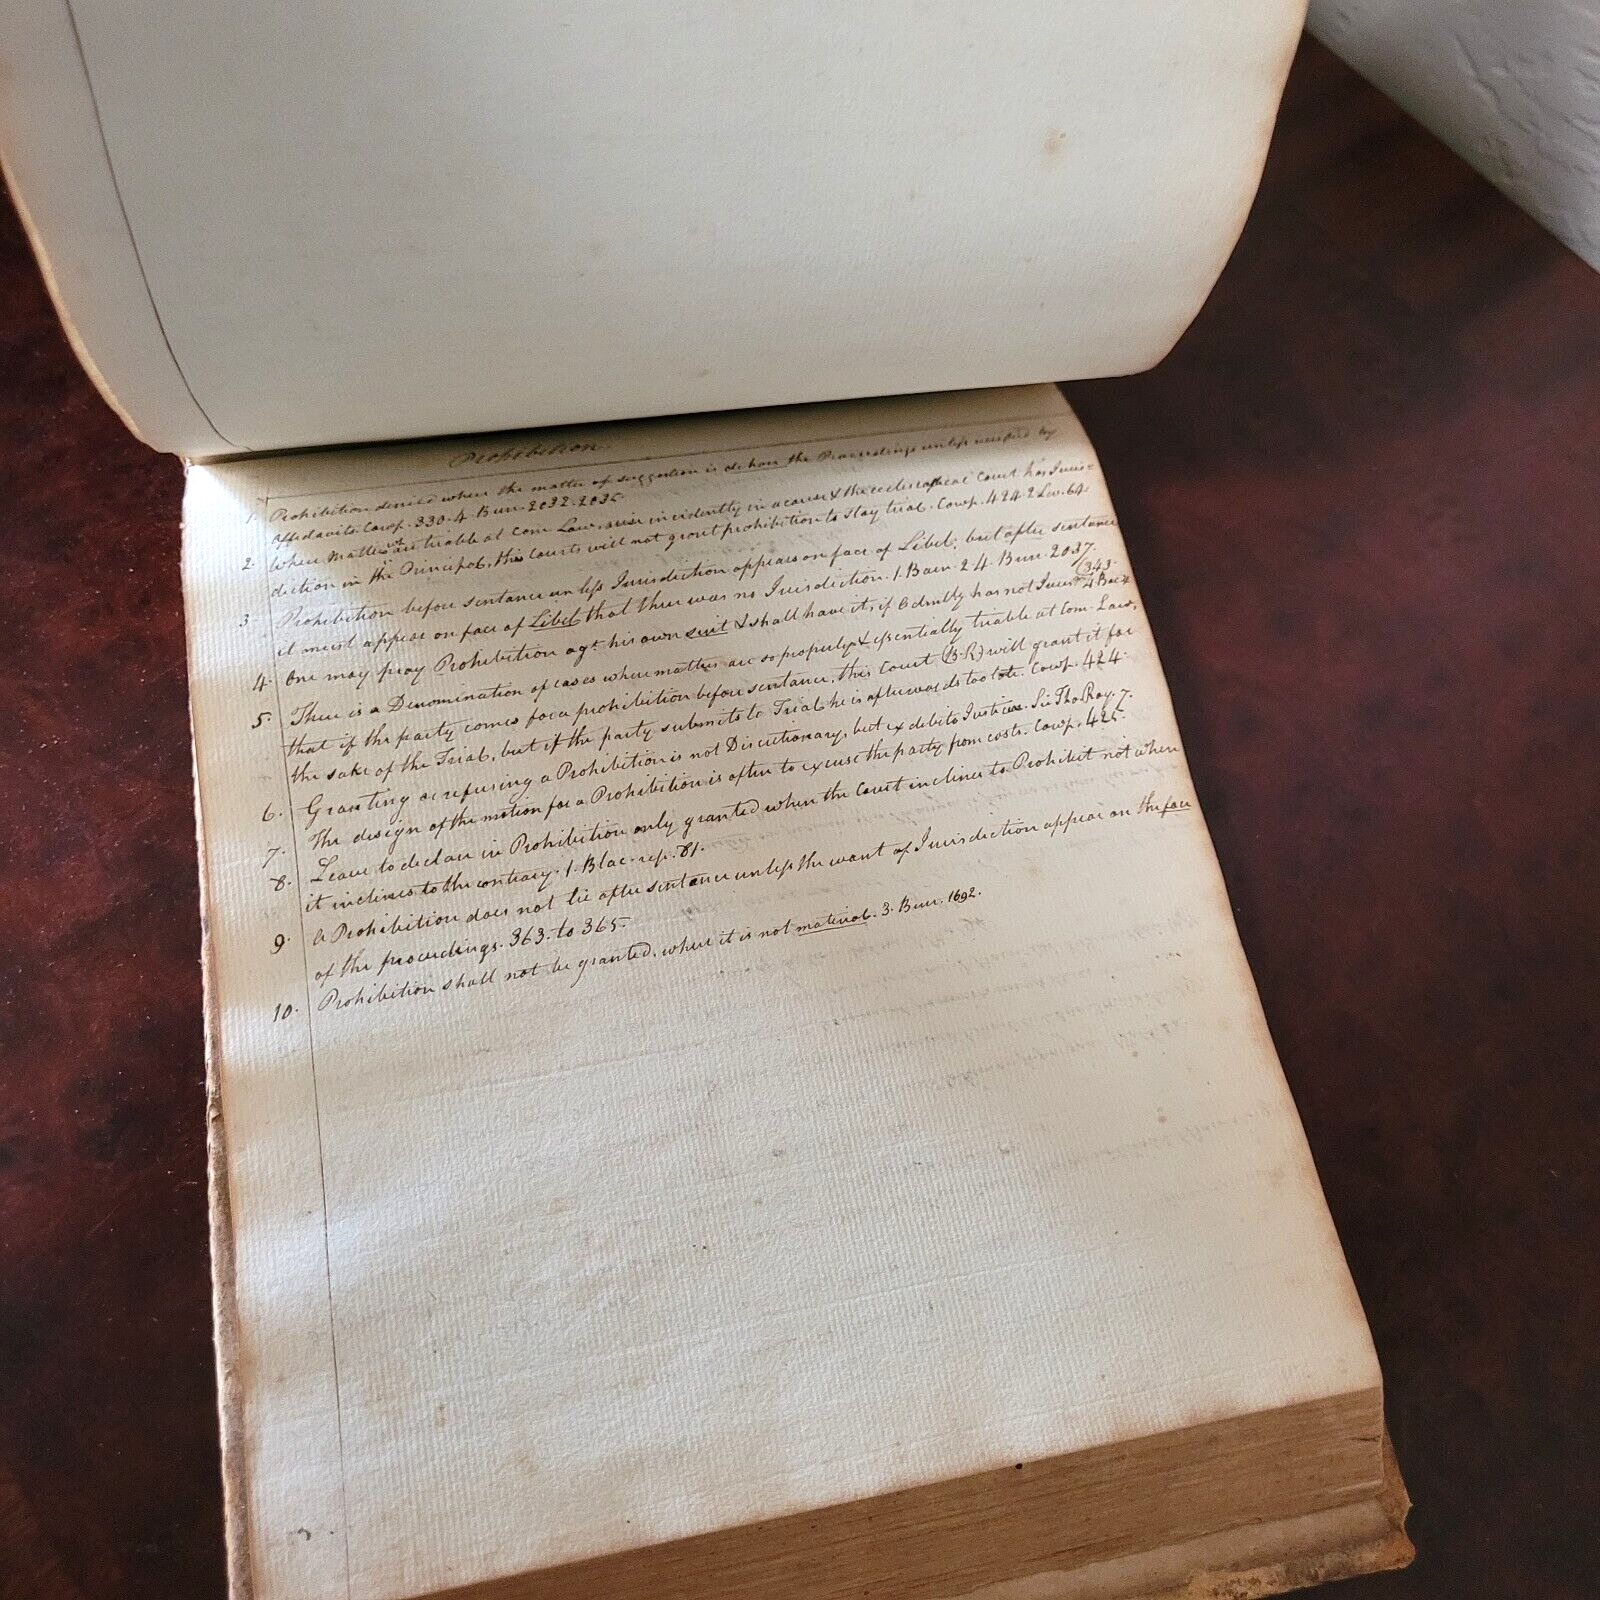 Prohibition
1. Prohibition denied where the matter of suggestion is dehors the Proceedings unless verified by
Affidavits. Cowp. 330. 4. Burr. 2032. 2035.
2. Where Matters wh are triable at Com Law, arise incidently in a cause & the ecclesiastical Court has Juris=
diction in the Principal, this Courts will not grant prohibition to stay trial. Cowp. 424. 2 Lev. 64.
3. Prohibition before sentance unless Jurisdiction appears on face of Libel; but after sentance
it must appear on face of Libel that there was no Jurisdiction. 1. Burr. 2. 4. Burr. 2037.
4. One may pray Prohibition agt. his own suit & shall have it, if Admlty has not Jurisn (343. 4 Bac.
5. There is a Denomination of cases where matters are so properly & essentially triable at Com- Law,
that if the party comes for a prohibition before sentance, this Court (B. R.) will grant it for
the sake of the Trial, but if the party submits to Trial he is afterwards too late. Cowp. 424.
6. Granting or refusing a Prohibition is not Discretionary, but ex debito Justiciæ. Sir Tho. Ray. 7.
7. The design of the motion for a Prohibition is often to excuse the party from costs. Cowp. 425.
8. Leave to declare in Prohibition only granted when the Court inclines to Prohibit not where
it inclines to the contrary. 1. Blac. rep. 81.
9. A Prohibition does not lie after sentance unless the want of Jurisdiction appear on the face
of the proceedings. 363. to 365.
10. Prohibition shall not be granted, where it is not material. 3. Burr. 1692.